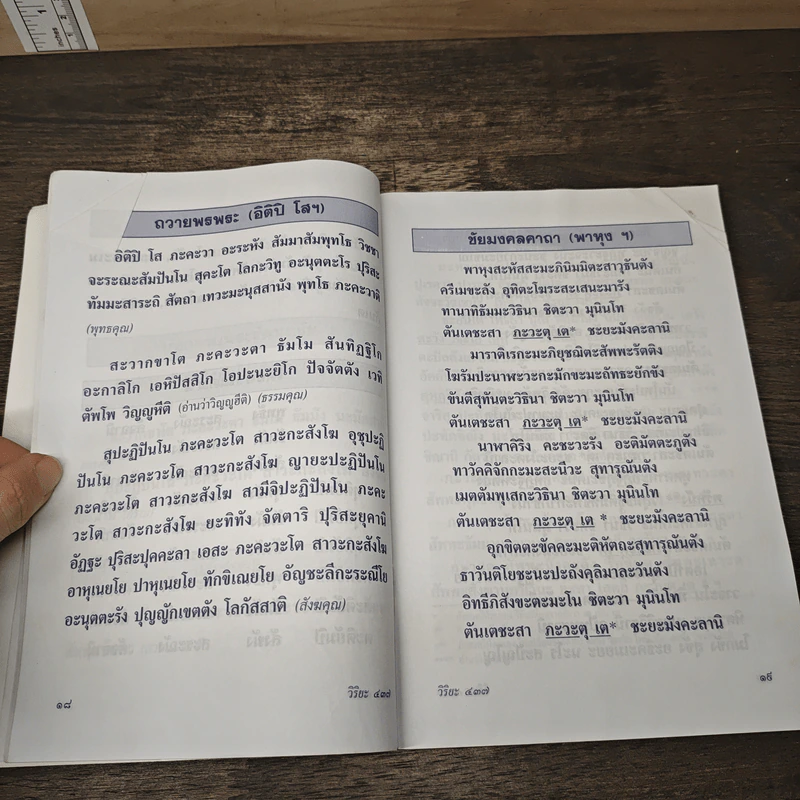 ถวายพรพระ (อิติปิ โสฯ)
อิติปิ โส ภะคะวา อะระหัง สัมมาสัมพุทโธ วิชชา
จะระณะสัมปันโน สุคะโต โลกะวิทู อะนุตตะโร ปุริสะ
ทัมมะสาระถิ สัตถา เทวะมะนุสสานัง พุทโธ ภะคะวาติ
(พุทธคุณ)
สะวากขาโต ภะคะวะตา ธัมโม สันทิฏฐิโก
อะกาลิโก เอหิปัสสิโก โอปะนะยิโก ปัจจัตตัง เวทิ
ตัพโพ วิญญูหีติ (อ่านว่าวิญญูฮีติ) (ธรรมคุณ)
สุปะฏิปันโน ภะคะวะโต สาวะกะสังโฆ อุชุปะฏิ
ปันโน ภะคะวะโต สาวะกะสังโฆ ญายะปะฏิปันโน
ภะคะวะโต สาวะกะสังโฆ สามีจิปะฏิปันโน ภะคะ
วะโต สาวะกะสังโฆ ยะทิทัง จัตตาริ ปุริสะยุคานิ
อัฏฐะ ปุริสะปุคคะลา เอสะ ภะคะวะโต สาวะกะสังโฆ
อาหุเนยโย ปาหุเนยโย ทักขิเณยโย อัญชะลีกะระณีโย
อะนุตตะรัง ปุญญักเขตตัง โลกัสสาติ (สังฆคุณ)
๑๘
วิริยะ ๔๓๗
ชัยมงคลคาถา (พาหุง ฯ)
พาหุงสะหัสสะมะภินิมมิตะสาวุธันตัง
ครีเมขะลัง อุทิตะโฆระสะเสนะมารัง
ทานาทิธัมมะวิธินา ชิตะวา มุนินโท
ตันเตชะสา ภะวะตุ เต* ชะยะมังคะลานิ
มาราติเรกะมะภิยุชฌิตะสัพพะรัตติง
โฆรัมปะนาฬะวะกะมักขะมะถัทธะยักขัง
ขันตีสุทันตะวิธินา ชิตะวา มุนินโท
ตันเตชะสา ภะวะตุ เต* ชะยะมังคะลานิ
นาฬาคิริง คะชะวะรัง อะติมัตตะภูตัง
ทาวัคคิจักกะมะสะนีวะ สุทารุณันตัง
เมตตัมพุเสกะวิธินา ชิตะวา มุนินโท
ตันเตชะสา ภะวะตุ เต * ชะยะมังคะลานิ
อุกขิตตะขัคคะมะติหัตถะสุทารุณันตัง
ธาวันติโยชะนะปะถังคุลิมาละวันตัง
อิทธีภิสังขะตะมะโน ชิตะวา มุนินโท
ตันเตชะสา ภะวะตุ เต* ชะยะมังคะลานิ
วิริยะ ๔๓๗
๑๙